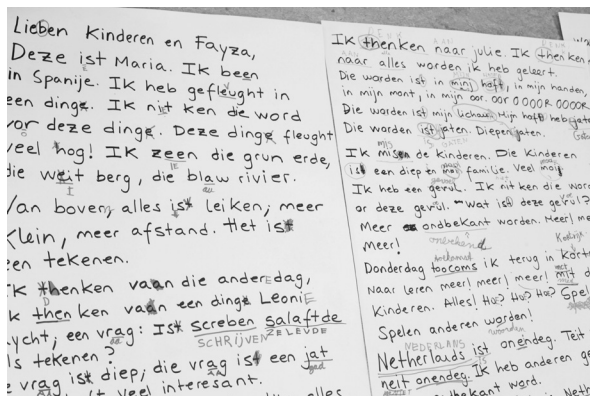 Lieben Kinderen en Fayza,
Deze ist Maria. Ik been
in Spanije. Ik heb gefleught in
een dinge. Ik nit ken die word
vor deze dinge. Deze dinge fleught
veel hog! Ik zeen die grun erde,
die weit berg, die blaw rivier.
Van boven, alles ist leiken; meer
Klein, meer afstand. Het ist
een tekenen.
Ik thenken vaan die anderedag,
Ik then ken vaan een dinge Leonie
een vrag: Ist screben salaftde
SCHRIJVEN ZELEVDE
als tekenen? die vrag ist een jat
gad
vrag ist diep; die vrag
ist veel interesant.
alles
Ik thenken naar julie. Ik thenken
naar alles worden ik heb geleert.
Die worden ist in minj hoft, in mijn handen,
in mijn mont, in mijn oor. oor OOOOR OOOOR
Die worden ist mijn lichaw. Mijn hoft heb jaten
Die worden ist jaten. Diepen jaten.
Ik misen de Kinderen. Die Kinderen
ist een diep en moi familie. Veel moij
Ik heb een gevul. Ik nit ken die word
or deze gevul. Wat ist deze gevul?
Meer ondbekant worden. Meer! me
Meer!
onbekend
Donderdag toocoms ik terug in Kort
Naar leren meer! meer! meer! mit d
Kinderen. Alles! Ho? Ho? Ho? Spel
Spelen anderen worden!
woorden
NEDERLANS
Netherlands ist onendeg. Teit
neit onendeg. Ik heb anderen ge
bekant word.